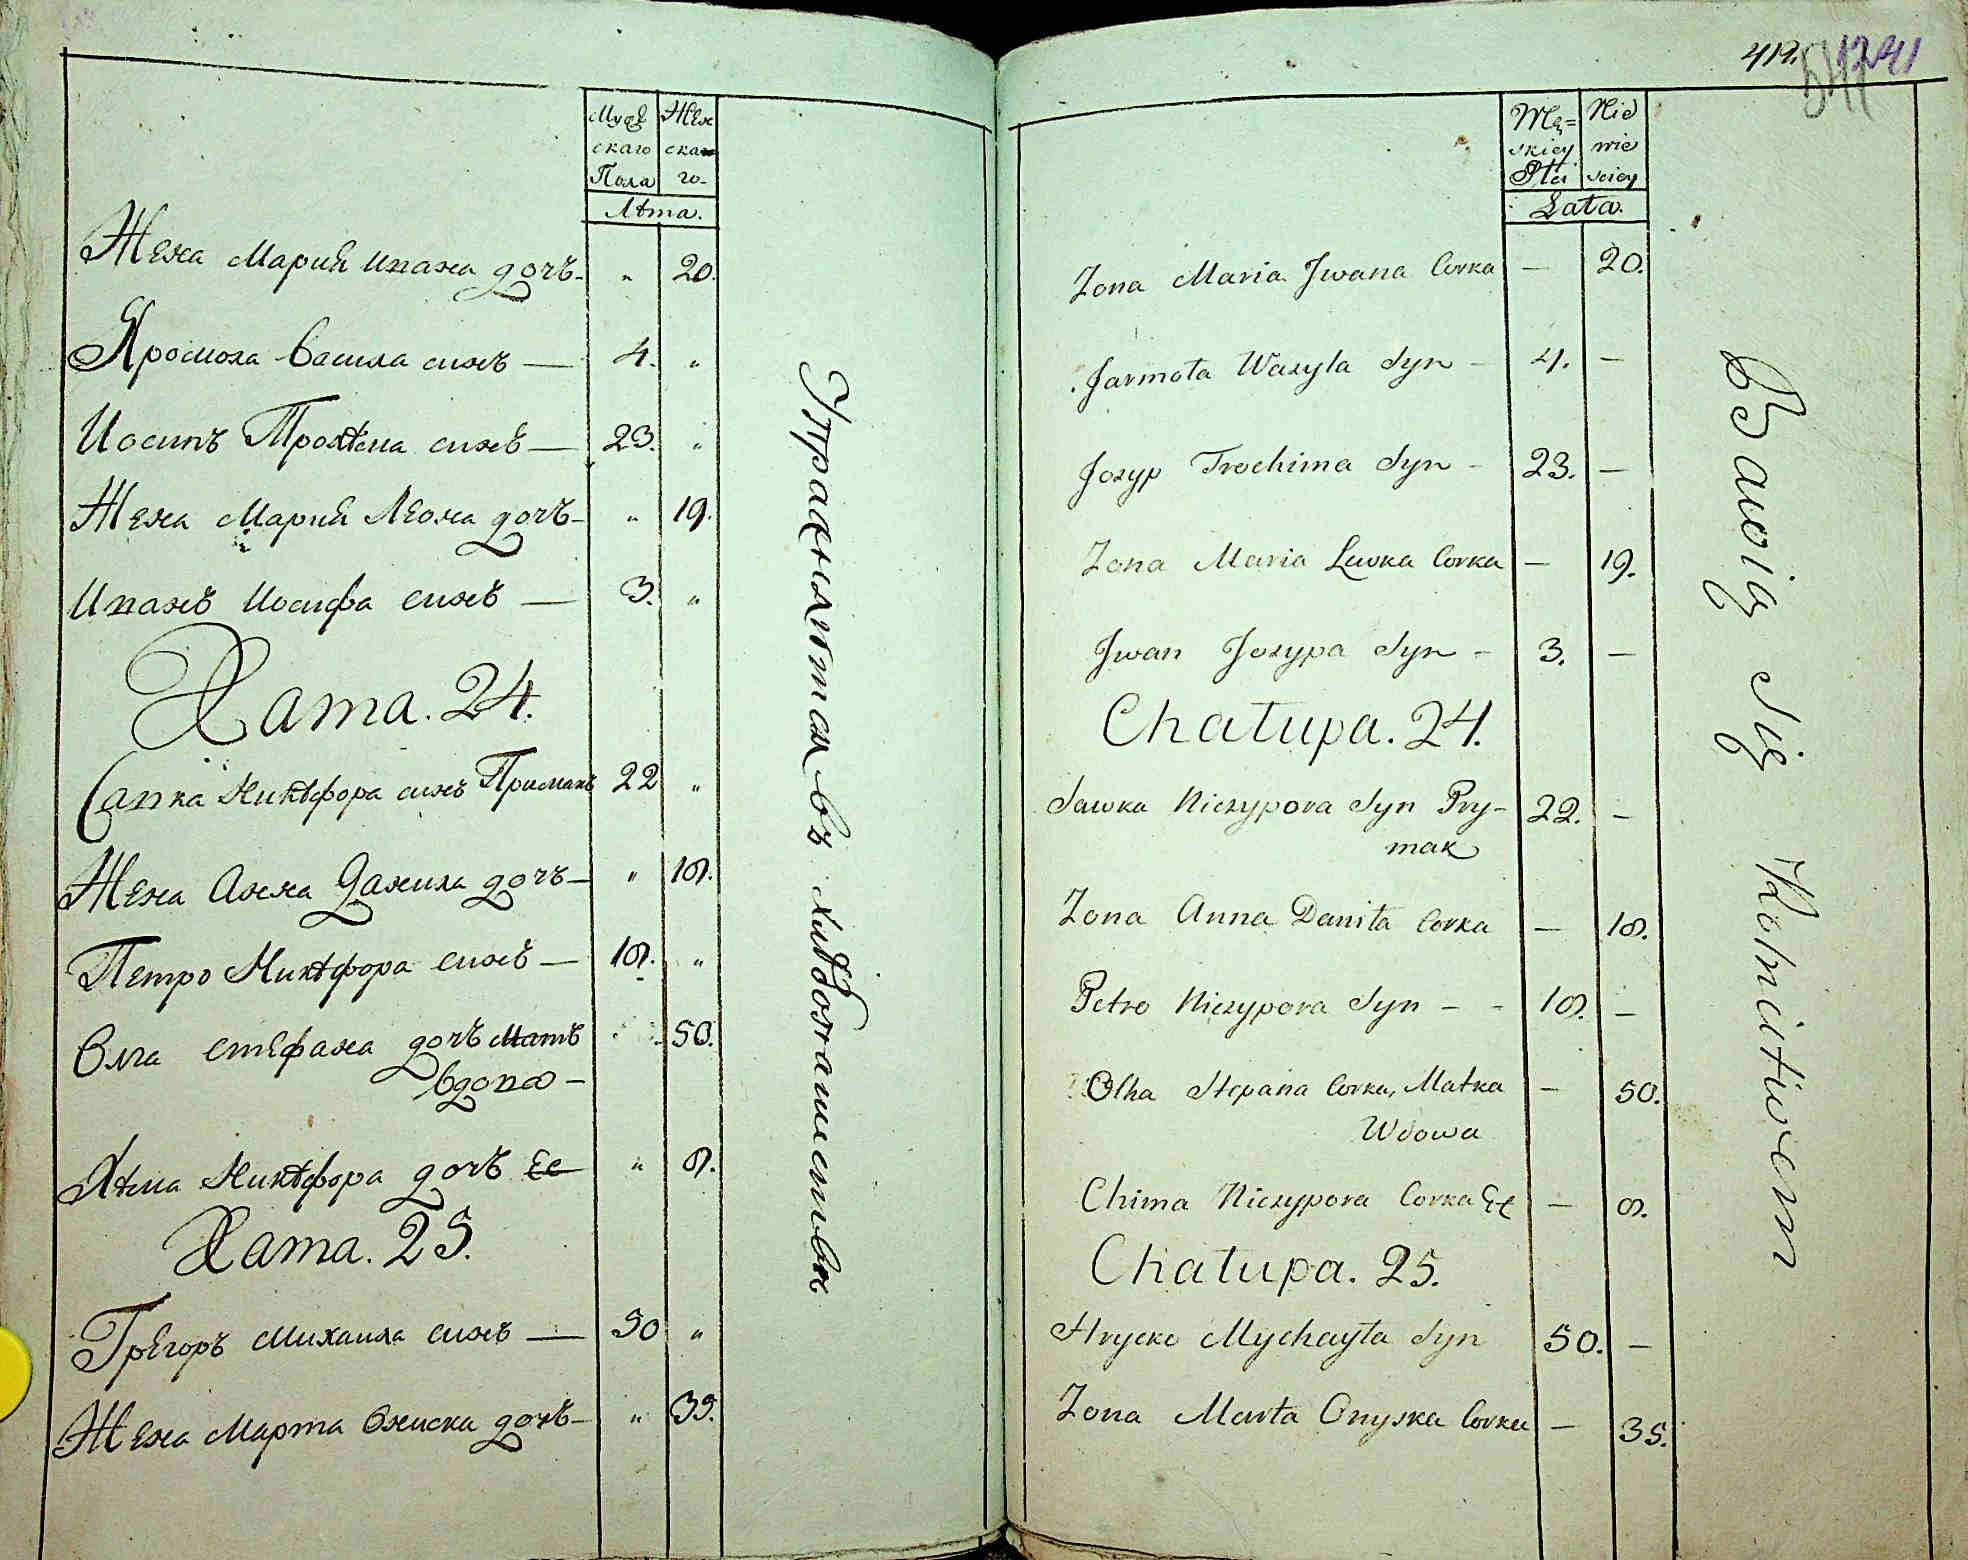 Мужескаго Пола
Женскаго
Лѣта.
Жена Мария Ивана дочъ - " 20.
Яромола Василя синъ — 4. "
Иосипъ Трохѣма синъ — 23. "
Жена Мария Левка дочъ - " 19.
Иванъ Иосифа синъ — 3. "
Хата. 24.
Савка Никѣфора синъ Примакъ 22 "
Жена Анна Данила дочъ - " 18.
Петро Никѣфора синъ — 18. "
Олга Стефана дочъ Матъ " 50.
Вдова -
Хѣма Никѣфора дочъ Ее " 8.
Хата. 25.
Грегоръ Михаила синъ — 50 "
Жена Марта Ониска дочъ - " 35.
Упражняются въ хлѣбопашествѣ
412.
541
1241
Męskiey Płci
Niewiesciey
Lata.
Zona Maria Jwana Corka — 20.
Jarmoła Wasyla Syn - 4. —
Josyp Trochima Syn - 23. —
Zona Maria Lewka Corka — 19.
Jwan Josypa Syn - 3. —
Chałupa. 24.
Sawka Niczypora Syn Pry-
mak 22. —
Zona Anna Daniła Corka — 18.
Petro Niczypora Syn - - 18. —
Olha Stepana Corka, Matka — 50.
Wdowa
Chima Niczypora Corka Ee — 8.
Chałupa. 25.
Hrycko Mychayła Syn 50. —
Zona Marta Onyska Corka — 35.
Bawią się Rolnictwem